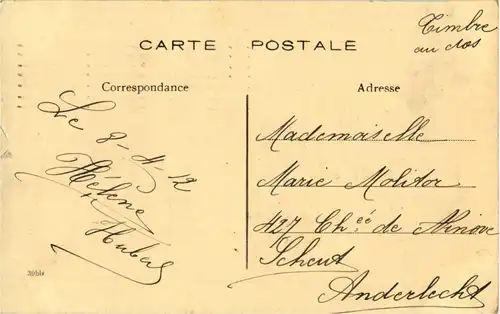 Timbre
au dos
CARTE POSTALE
Correspondance
Adresse
Le 8-4-12
Hélène
Hubert
Mademoiselle
Marie Molitor
427 Ch.ée de Ninove
Scheut
Anderlecht